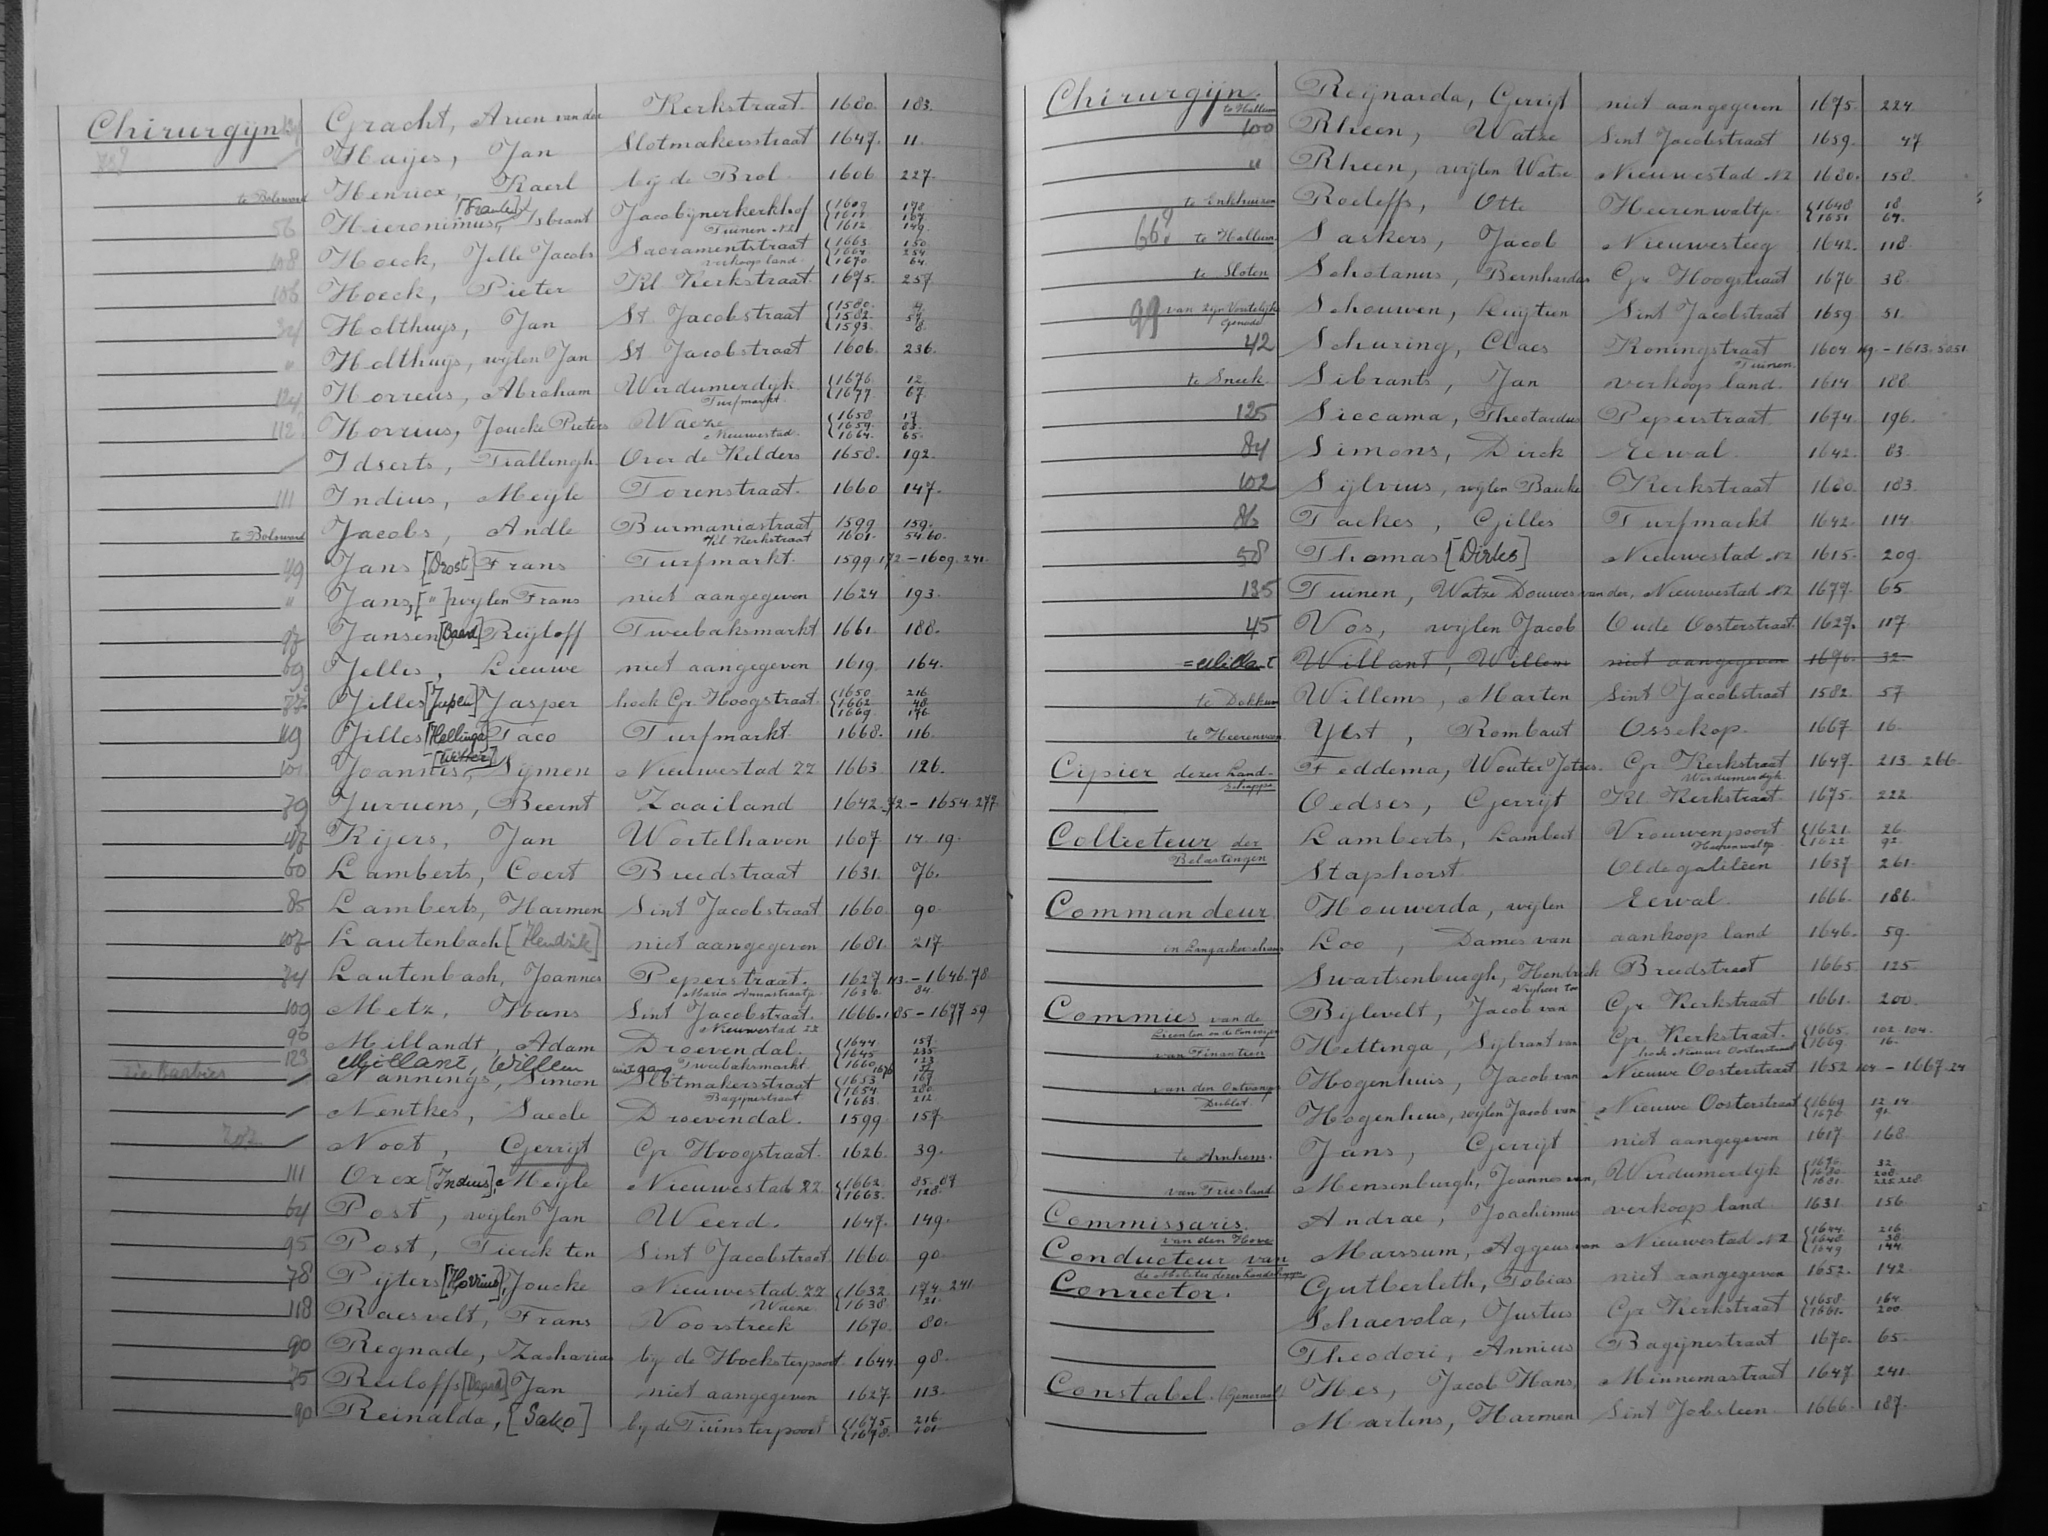 Chirurgijn Gracht, Arien van der Kerkstraat 1680. 183.
Haijes, Jan Slotmakersstraat 1647. 11.
te Bolsward Henricx, Kaerl bij de Brol. 1606 227.
56 Hieronimus, [Franken] Isbrant Jacobijnerkerkhof 1609 178
Tuinen NZ 1611 1612 149.
108 Hoeck, Jelle Jacobs Sacramentstraat 1663. 150.
verkoop land. 1664. 254 1670. 64.
106 Hoeck, Pieter Kl Kerkstraat 1675. 257.
34 Holthuijs, Jan St Jacobstraat 1580. 1582. 1593. 8.
" Holthuijs, wijlen Jan St Jacobstraat 1606. 236.
124 Horreus, Abraham Wirdumerdijk 1676. 12
Turfmarkt. 1677. 67.
112 Horreus, Joucke Pieters Waeze 1658. 17
Nieuwestad. 1659. 83. 1664. 65.
Idserts, Tiallingh Over de Kelders 1658. 192.
111 Indius, Meijle Torenstraat. 1660 147.
te Bolsward Jacobs, Andle Burmaniastraat 1599 159.
Kl Kerkstraat 1601. 54.60.
49 Jans [Drost] Frans Turfmarkt. 1599. 172 – 1609. 241.
" Jans, ["] wijlen Frans niet aangegeven 1624 193.
97 Jansen [Baard] Reijloff Tweebaksmarkt 1661. 188.
69 Jelles, Lieuwe niet aangegeven 1619. 164.
Jilles [Jupleu] Jasper hoek Gr. Hoogstraat 1650. 216
1662. 48. 1669. 176
119 Jilles [Hellinga] Taco Turfmarkt 1668. 116.
101 Joannis, [Witter] Sijmen Nieuwestad ZZ 1663. 126.
79 Jurriens, Beernt Zaailand 1642. 72 – 1654. 277.
47 Kijers, Jan Wortelhaven 1607 14. 19.
60 Lamberts, Coert Breedstraat 1631. 76.
85 Lamberts, Harmen Sint Jacobstraat 1660. 90.
107 Lautenbach [Hendrik] niet aangegeven 1681. 217
74 Lautenbach, Joannes Peperstraat. 1627. 113 – 1646. 78
Maria Annastraatje 1636. 84.
109 Metz, Hans Sint Jacobstraat. 1666. 185 – 1677 59
Nieuwestad ZZ
90 Millandt, Adam Droevendal. 1644. 157.
1645 235
123 Millant, Willem Tweebaksmarkt 1660. 123
zie Barbier Nannings, Simon Slotmakersstraat 1653 167
Bagijnestraat 1654. 1663. 212
Nentkes, Saecle Droevendal. 1599 157.
Noot, Gerrijt Gr Hoogstraat. 1626. 39.
111 Orex [Indius], Meijle Nieuwestad ZZ 1662. 85. 87
1663. 128.
64 Post, wijlen Jan Weerd. 1647. 149.
95 Post, Tierck ten Sint Jacobstraat 1660. 90.
78 Pijters [Horrius], Joucke Nieuwestad ZZ 1632. 174. 241.
Waeze. 1638. 21.
118 Raesvelt, Frans Voorstreek 1670. 80.
90 Regnade, Zacharias bij de Hoeksterpoort 1644. 98.
75 Reiloffs [Baard] Jan niet aangegeven 1627. 113.
90 Reinalda, [Sako] bij de Tuinsterpoort 1675. 216.
1678. 101.
Chirurgijn. te Hallum Reijnarda, Gerrijt niet aangegeven 1675. 224.
100 Rheen, Watze Sint Jacobstraat 1659. 47
" Rheen, wijlen Watze Nieuwestad NZ 1680. 158.
te Enkhuizen Roeleffs, Otte Heerenwaltje. 1648 18.
1651 64.
66? te Hallum Saskers, Jacob Nieuwesteeg 1642. 118.
te Sloten Schotanus, Bernhardus Gr Hoogstraat 1676 38.
99 van Zijn Vorstelijke Genade Schouwen, Luijtien Sint Jacobstraat 1659 51.
42 Schuring, Claes Koningstraat 1604 – 1613. 50.51
Tuinen
te Sneek. Sibrants, Jan verkoop land. 1614 188.
125 Siccama, Theotardus Peperstraat. 1674. 196.
84 Simons, Dirck Eewal. 1642. 83.
102 Sijlvius, wijlen Bauke Kerkstraat 1680. 183.
86 Tackes, Gilles Turfmarkt 1642. 114.
58 Thomas [Dirks] Nieuwestad NZ 1615. 209.
135 Tuinen, Watze Douwes van der, Nieuwestad NZ 1677. 65.
45 Vos, wijlen Jacob Oude Oosterstraat 1627. 117
= Millant Willant, Willem niet aangegeven 1676. 32.
te Dokkum Willems, Marten Sint Jacobstraat 1582. 57
te Heerenveen Ylst, Rombaut Ossekop. 1667 16.
Cipier dezer Landschappe Feddema, Wouter Jetses. Gr Kerkstraat 1647. 213. 266.
Wirdumerdijk
Oedses, Gerrijt Kl Kerkstraat. 1675. 222.
Collecteur der Belastingen Lamberts, Lambert Vrouwenpoort 1621. 26.
Heerenwaltje 1622 92.
Staphorst Oldegalileën 1637 261.
Commandeur Houwerda, wijlen Eewal. 1666. 186.
in Langackerschans Loo, Dames van aankoop land 1646. 59.
Swartsenburgh, Hendrick Breedstraat 1665 125
Commies van de Licenten en de Convoijen Bijlevelt, Jacob van Gr. Kerkstraat 1661. 200.
van Finantien Hettinga, Sijbrant van Gr. Kerkstraat. 1665. 102. 104.
hoek Nieuwe Oosterstraat 1669. 16.
van den Ontvanger Dublet. Hogenhuis, Jacob van Nieuwe Oosterstraat 1652 104 – 1667. 24
Hogenhuis, wijlen Jacob van Nieuwe Oosterstraat 1669 12 14.
1670. 91.
te Arnhem. Jans, Gerrijt niet aangegeven 1617 168.
van Friesland Mensenburgh, Joannes van, Wirdumerdijk 1676. 32.
1680. 208. 1681. 225.228.
Commissaris. van den Hove Andrae, Joachimus verkoop land 1631. 156.
Conducteur van de Militie dezer Landschappe Marssum, Aggeus van Nieuwestad NZ 1644. 216
1648 38. 1649 144.
Conrector. Gutberleth, Tobias niet aangegeven 1652. 142
Schaevola, Justus Gr. Kerkstraat 1658. 164.
1661. 200.
Theodori, Annius Bagijnestraat 1670. 65.
Constabel. (Generaal) Hes, Jacob Hans, Minnemastraat 1647 241.
Martens, Harmen Sint Jobsleen. 1666. 187.